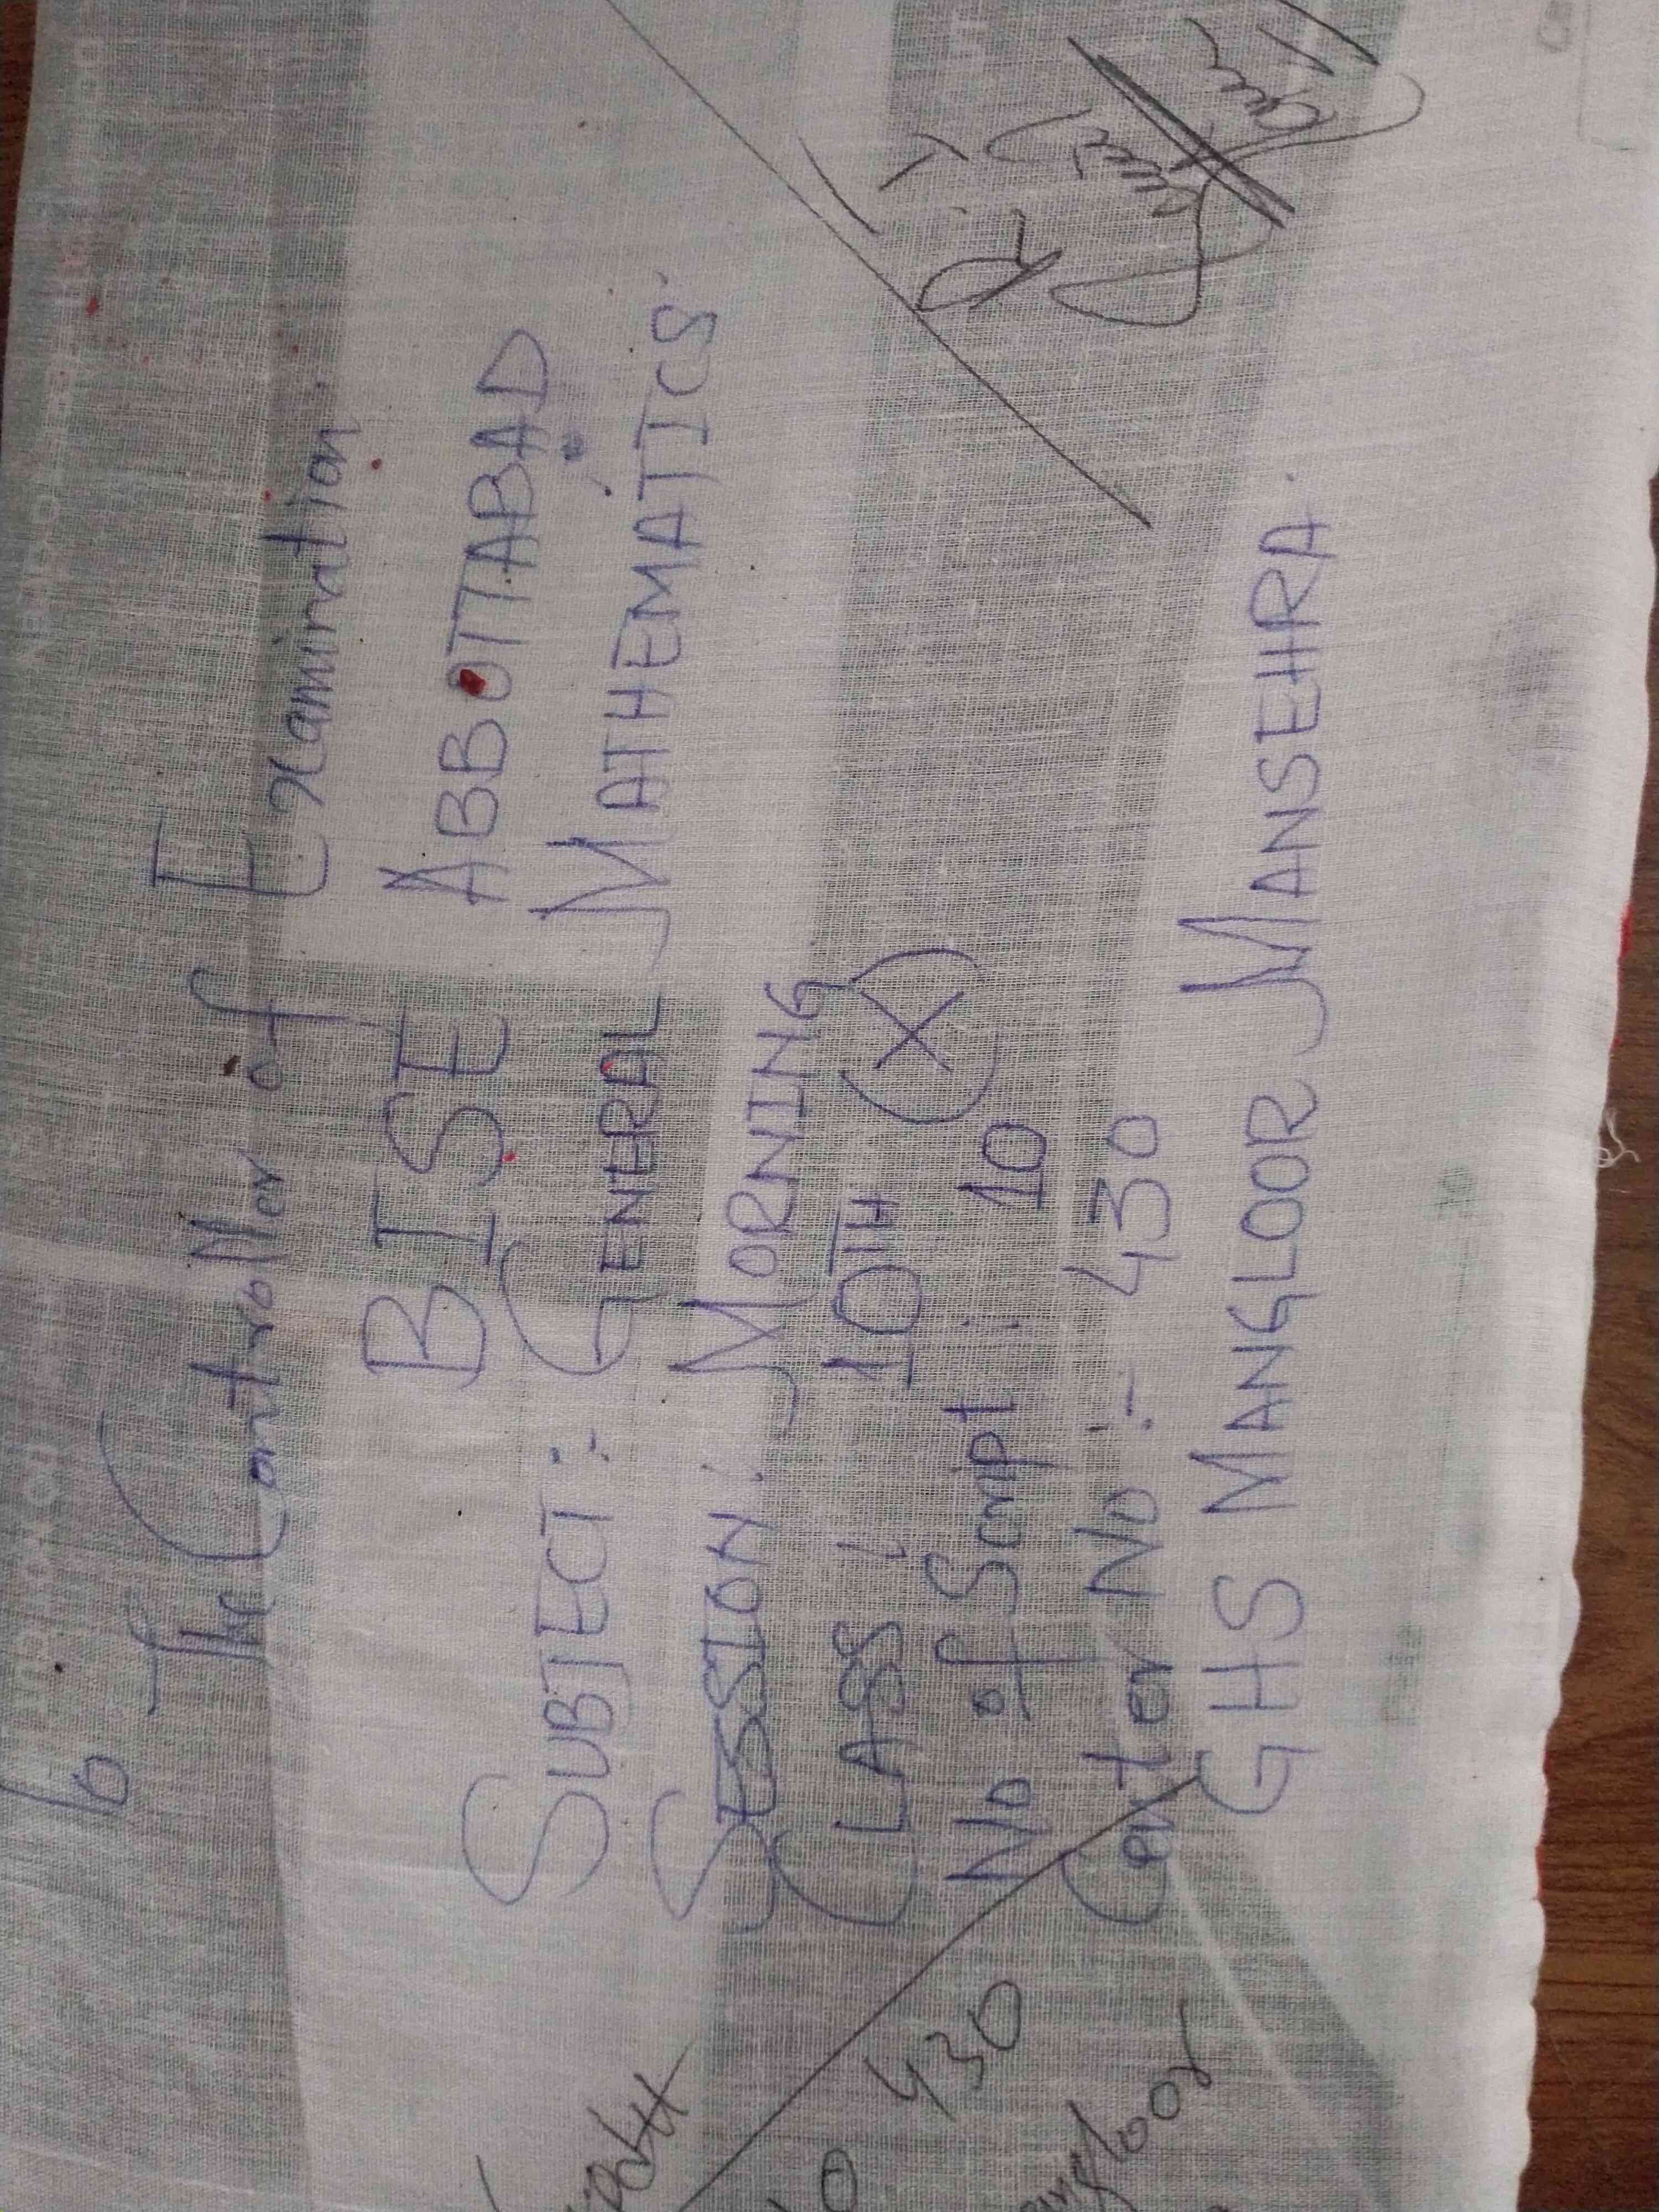 To The Controller of Examination
BISE ABBOTTABAD
SUBJECT :- GENERAL MATHEMATICS
SESSION : MORNING
CLASS : 10TH (X)
No of Script : 10
Center No :- 430
GHS MANGLOOR MANSEHRA.
430